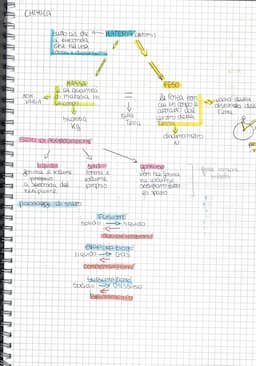 CHIMICA
tutto ciò che
ci circonda
che ha una
MATERIA (atomi)
MASSA
è la quantità
di materia in
un corpo
NON
VARIA
bilancia
Kg
=
sulla
Terra
PESO
la forza con
cui un corpo è
attratto dal
centro della
Terra
varia dalla
distanza dalla
Terra
dinamometro
N
STATI DI AGGREGAZIONE
liquido
forma e volume
a seconda del
recipiente
solido
forma e
volume
proprio
gassoso
non ha forma
né volume
lo spazio
passaggi di stato
FUSIONE
SOLIDO → LIQUIDO
←
SOLIDIFICAZIONE
LIQUIDO → GAS
←
CONDENSAZIONE
SUBLIMAZIONE
SOLIDO → GASSOSO
←
BRINAMENTO